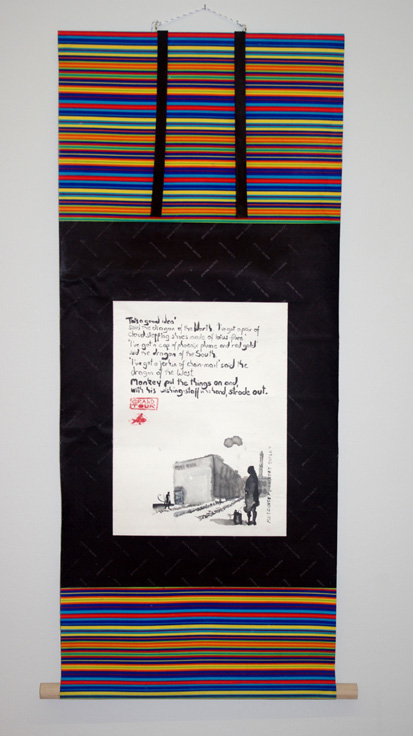 That's a good idea'
said the dragon of the North. I've got a pair of
cloud stepping shoes made of lotus-fibre'
'I've got a cap of phoenix plume and red gold'
said the dragon of the South.
'I've got a jerkin of chain-mail' said the
dragon of the West
Monkey put the things on and,
with his wishing-staff in his hand, strode out.
TOUR